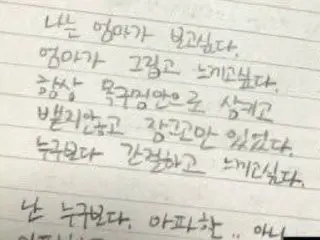 나는 엄마가 보고싶다.
엄마가 그립고 느끼고싶다.
항상 목구멍안으로 삼키고
뱉지안고 참고만 있었다.
누구보다 간절하고 느끼고싶다.
난 누구보다. 아파한.. 아니